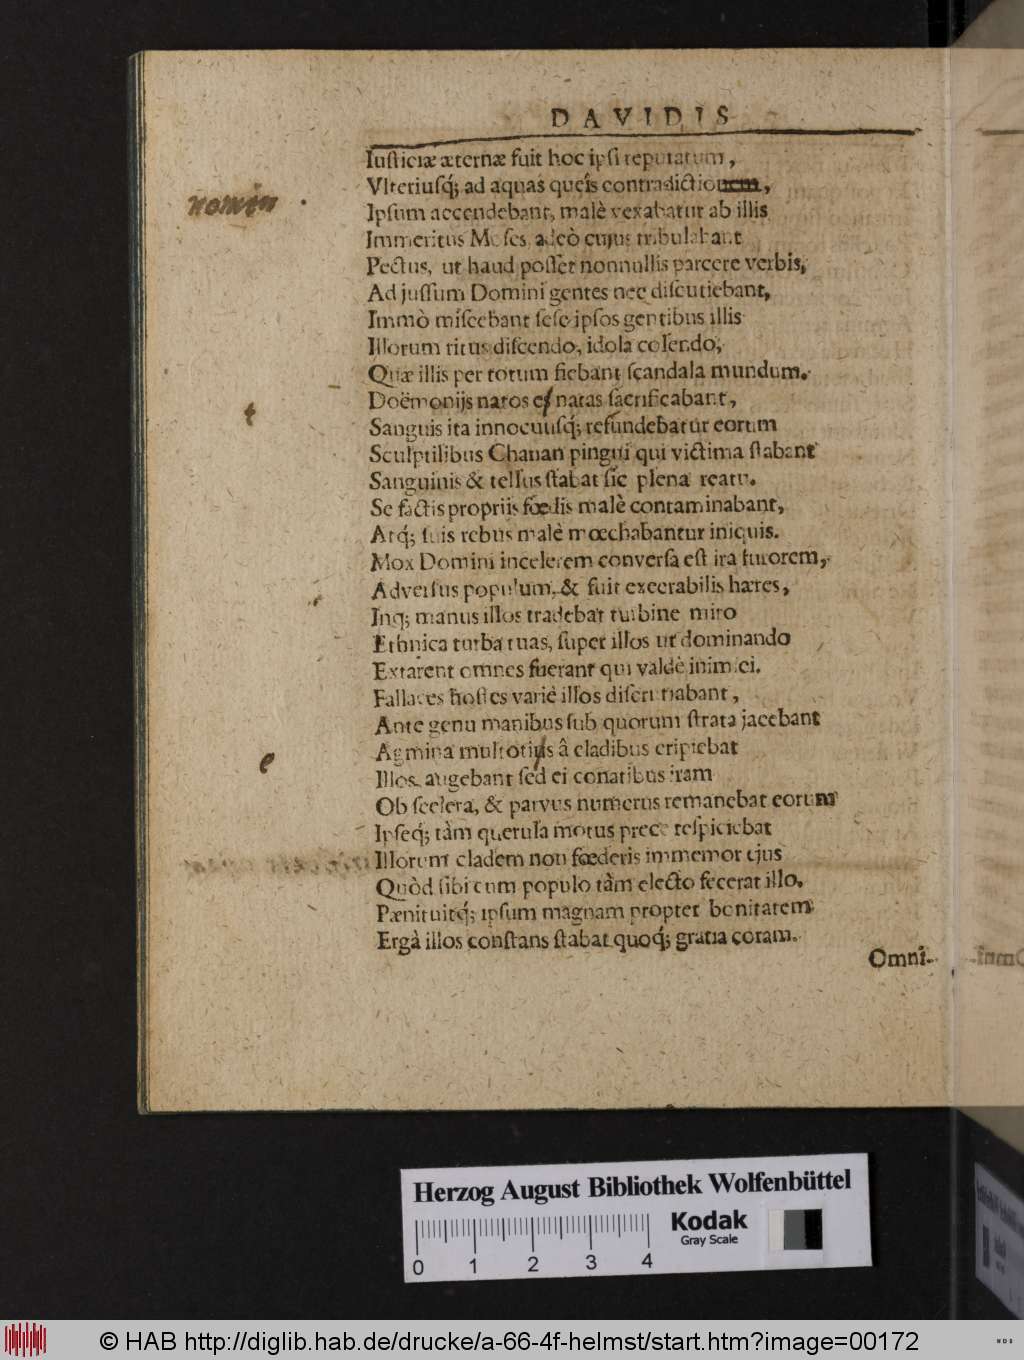 DAVIDIS
Iusticiæ æternæ fuit hoc ipsi reputatum,
Vlteriusq́; ad aquas queîs contradictionem,
nomin
Ipsum accendebant, malè vexabatur ab illis
Immeritus Moses, adeò cujus tribulabant
Pectus, ut haud posset nonnullis parcere verbis,
Ad jussum Domini gentes nec discutiebant,
Immò miscebant sese ipsos gentibus illis
Illorum ritus discendo, idola colendo,
Quæ illis per totum fiebant scandala mundum.
Doëmonijs natos & natas sacrificabant,
t
Sanguis ita innocuusq́; refundebatur eorum
Sculptilibus Chanan pingui qui victima stabant
Sanguinis & tellus stabat sic plena reatu.
Se factis propriis fœdis malè contaminabant,
Atq́; suis rebus malè mœchabantur iniquis.
Mox Domini incelerem conversa est ira furorem,
Adversus populum, & fuit execrabilis hæres,
Inq; manus illos tradebat turbine miro
Ethnica turba tuas, super illos ut dominando
Extarent omnes fuerant qui valdè inimici.
Fallaces hostes variè illos discruciabant,
Ante genu manibus sub quorum strata jacebant
Agmina multotius â cladibus eripiebat
e
Illos, augebant sed ei conatibus iram
Ob scelera, & parvus numerus remanebat eorum
Ipseq́; tàm querula motus prece respiciebat
Illorum cladem non fœderis immemor ejus
Quòd sibi cum populo tàm electo fecerat illo.
Pænituitq́; ipsum magnam propter bonitatem
Ergà illos constans stabat quoq́; gratia coram.
Omni-
Herzog August Bibliothek Wolfenbüttel
Kodak
Gray Scale
0 1 2 3 4
© HAB http://diglib.hab.de/drucke/a-66-4f-helmst/start.htm?image=00172